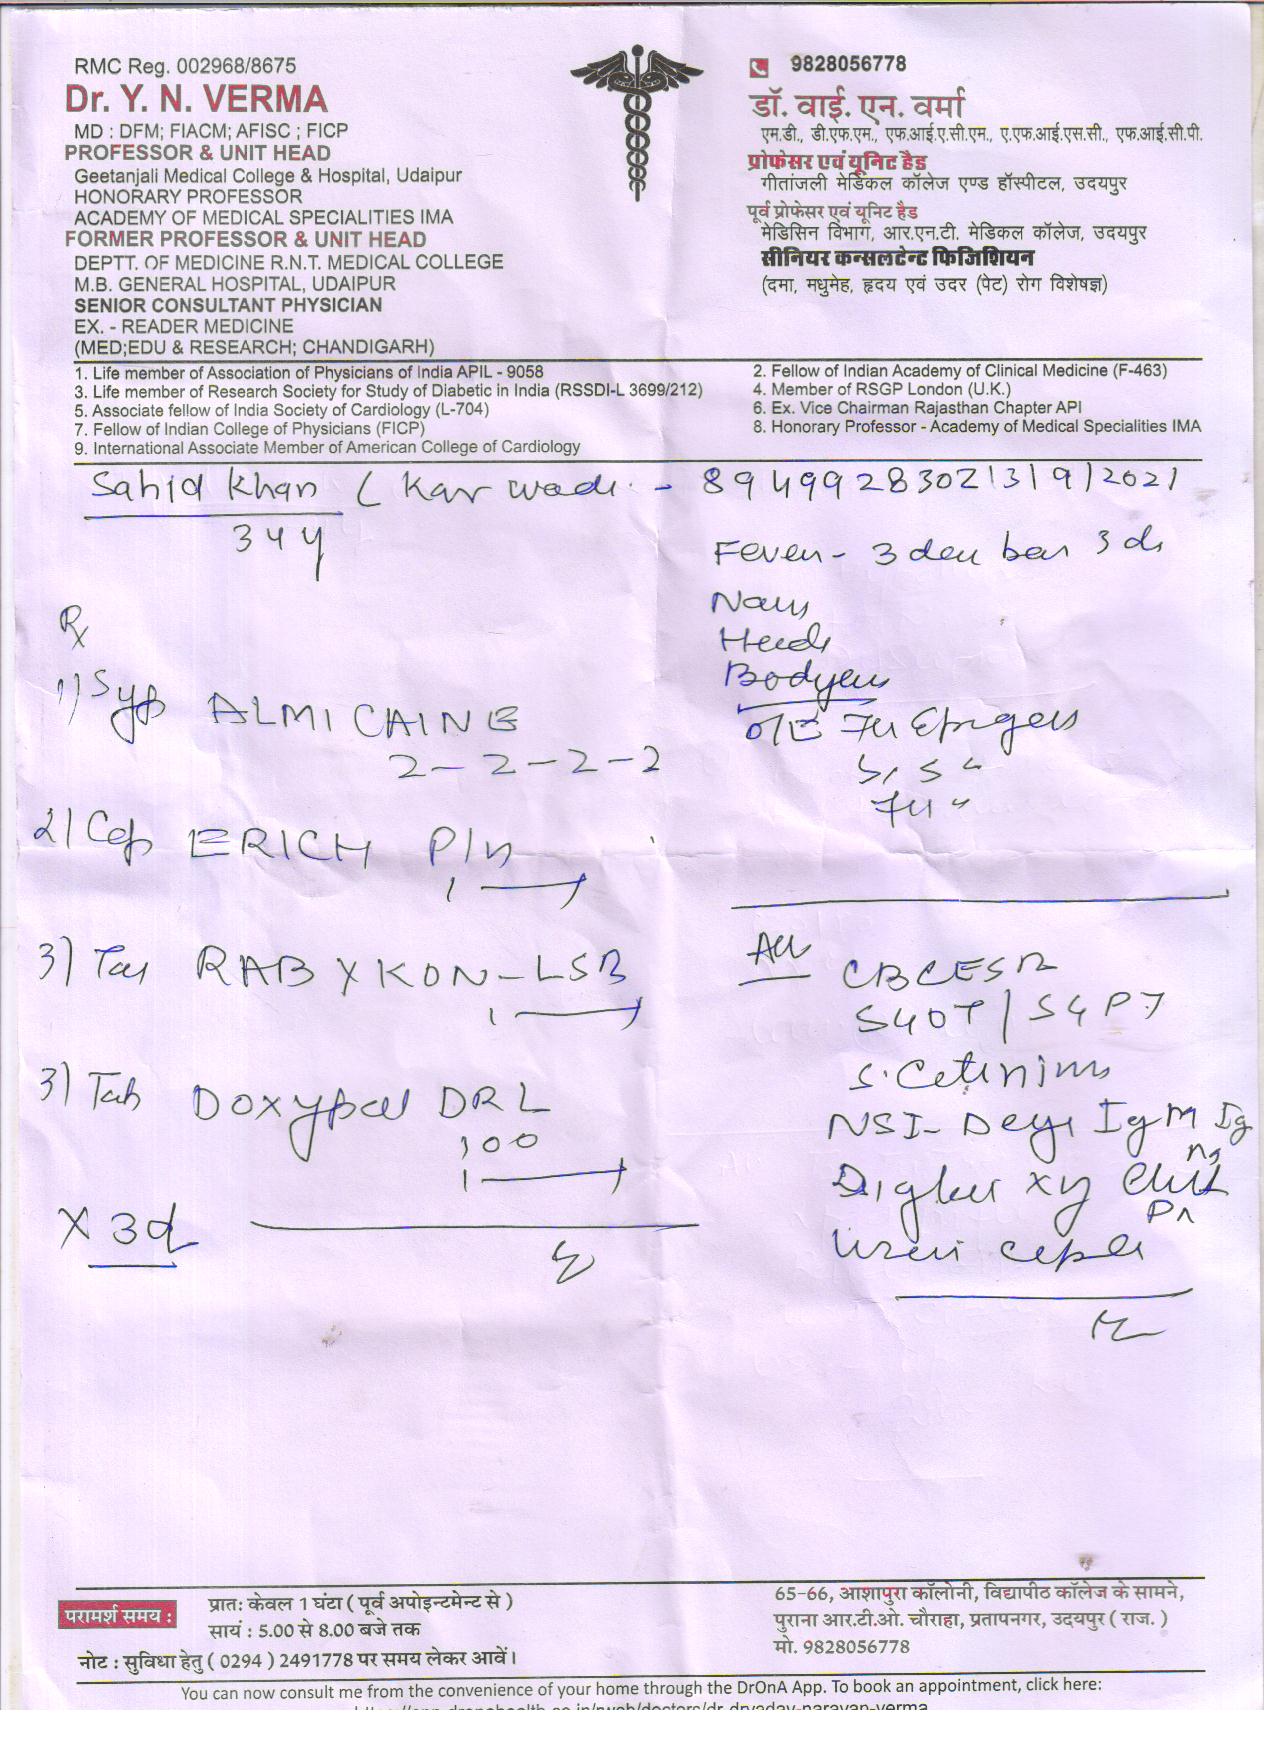 RMC Reg. 002968/8675
Dr. Y. N. VERMA
MD : DFM; FIACM; AFISC ; FICP
PROFESSOR & UNIT HEAD
Geetanjali Medical College & Hospital, Udaipur
HONORARY PROFESSOR
ACADEMY OF MEDICAL SPECIALITIES IMA
FORMER PROFESSOR & UNIT HEAD
DEPTT. OF MEDICINE R.N.T. MEDICAL COLLEGE
M.B. GENERAL HOSPITAL, UDAIPUR
SENIOR CONSULTANT PHYSICIAN
EX. - READER MEDICINE
(MED;EDU & RESEARCH; CHANDIGARH)
9828056778
डॉ. वाई. एन. वर्मा
एम.डी., डी.एफ.एम., एफ.आई.ए.सी.एम., ए.एफ.आई.एस.सी., एफ.आई.सी.पी.
प्रोफेसर एवं यूनिट हैड
गीतांजली मेडिकल कॉलेज एण्ड हॉस्पीटल, उदयपुर
पूर्व प्रोफेसर एवं यूनिट हैड
मेडिसिन विभाग, आर.एन.टी. मेडिकल कॉलेज, उदयपुर
सीनियर कन्सलटेन्ट फिजिशियन
(दमा, मधुमेह, हृदय एवं उदर (पेट) रोग विशेषज्ञ)
1. Life member of Association of Physicians of India APIL - 9058
2. Fellow of Indian Academy of Clinical Medicine (F-463)
3. Life member of Research Society for Study of Diabetic in India (RSSDI-L 3699/212)
4. Member of RSGP London (U.K.)
5. Associate fellow of India Society of Cardiology (L-704)
6. Ex. Vice Chairman Rajasthan Chapter API
7. Fellow of Indian College of Physicians (FICP)
8. Honorary Professor - Academy of Medical Specialities IMA
9. International Associate Member of American College of Cardiology
Sahid Khan ( Kar wadi - 8949928302 13/9/2021
34 y
Fever - 3
Head
O/E
Rx
1) Syp ALMICAINE
2-2-2-2
2) Cap ERICH
1
3) Tab RABYKON-LSB
1
3) Tab DOXYpal DRL
100
1
X 3d
CBC ESR
SGOT / SGPT
NSI- IgM Ig
परामर्श समय :
प्रातः केवल 1 घंटा ( पूर्व अपोइन्टमेन्ट से )
सायं : 5.00 से 8.00 बजे तक
नोट : सुविधा हेतु ( 0294 ) 2491778 पर समय लेकर आवें।
65-66, आशापुरा कॉलोनी, विद्यापीठ कॉलेज के सामने,
पुराना आर.टी.ओ. चौराहा, प्रतापनगर, उदयपुर ( राज. )
मो. 9828056778
You can now consult me from the convenience of your home through the DrOnA App. To book an appointment, click here: